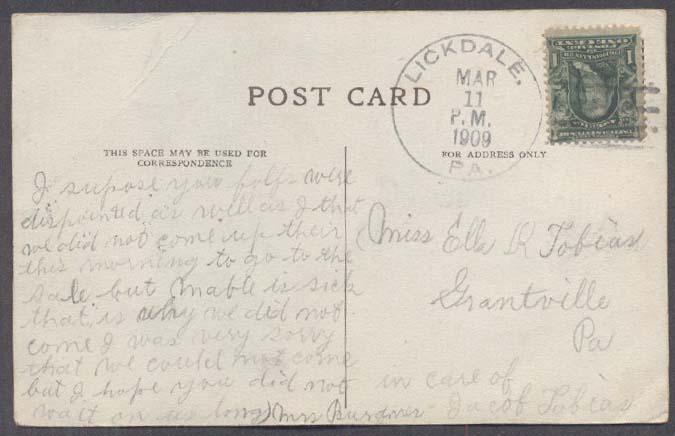 POST CARD
LICKDALE,
MAR
11
P.M.
1909
PA.
1
1
THIS SPACE MAY BE USED FOR
CORRESPONDENCE
FOR ADDRESS ONLY
I supose you folf were
dispointed as well as I that
we did not come up their
this morning to go to the
sale but Mable is sick
that is why we did not
come I was very sorry
that we could not come
but I hope you did not
wait on us long Mrs
Miss Ella R Tobias
Grantville
Pa
in care of
Jacob Tobias